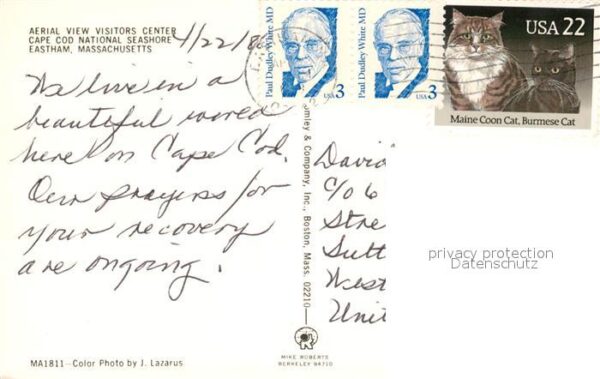 AERIAL VIEW VISITORS CENTER
CAPE COD NATIONAL SEASHORE
EASTHAM, MASSACHUSETTS
4/22/8
We live in a
beautiful world
here on Cape Cod.
Our prayers for
your recovery
are ongoing.
MA1811—Color Photo by J. Lazarus
omley & Company, Inc., Boston, Mass. 02210
MIKE ROBERTS
BERKELEY 94710
Paul Dudley White MD
USA 3
Paul Dudley White MD
USA 3
USA 22
Maine Coon Cat, Burmese Cat
David
C/O 6
Stre
Sutt
West
Unit
privacy protection
Datenschutz